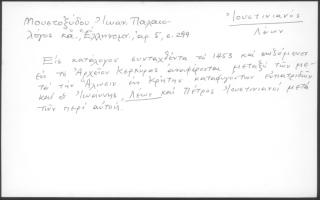 Μουστοξύδου Ἰωάν. Παλαιο-
λόγος κλ. Ἑλληνομν. ἀρ. 5, σ. 299
Ἰουστινιανός
Λέων
Εἰς κατάλογον συνταχθέντα τὸ 1453 καὶ σωζόμενον
ἐν τῷ Ἀρχείῳ Κερκύρας ἀναφέρονται μεταξὺ τῶν με-
τὰ τὴν Ἅλωσιν ἐν Κρήτῃ καταφυγόντων εὐπατριδῶν
καὶ ὁ Ἰωάννης, Λέων καὶ Πέτρος Ἰουστινιανοὶ μετὰ
τῶν περὶ αὐτούς.